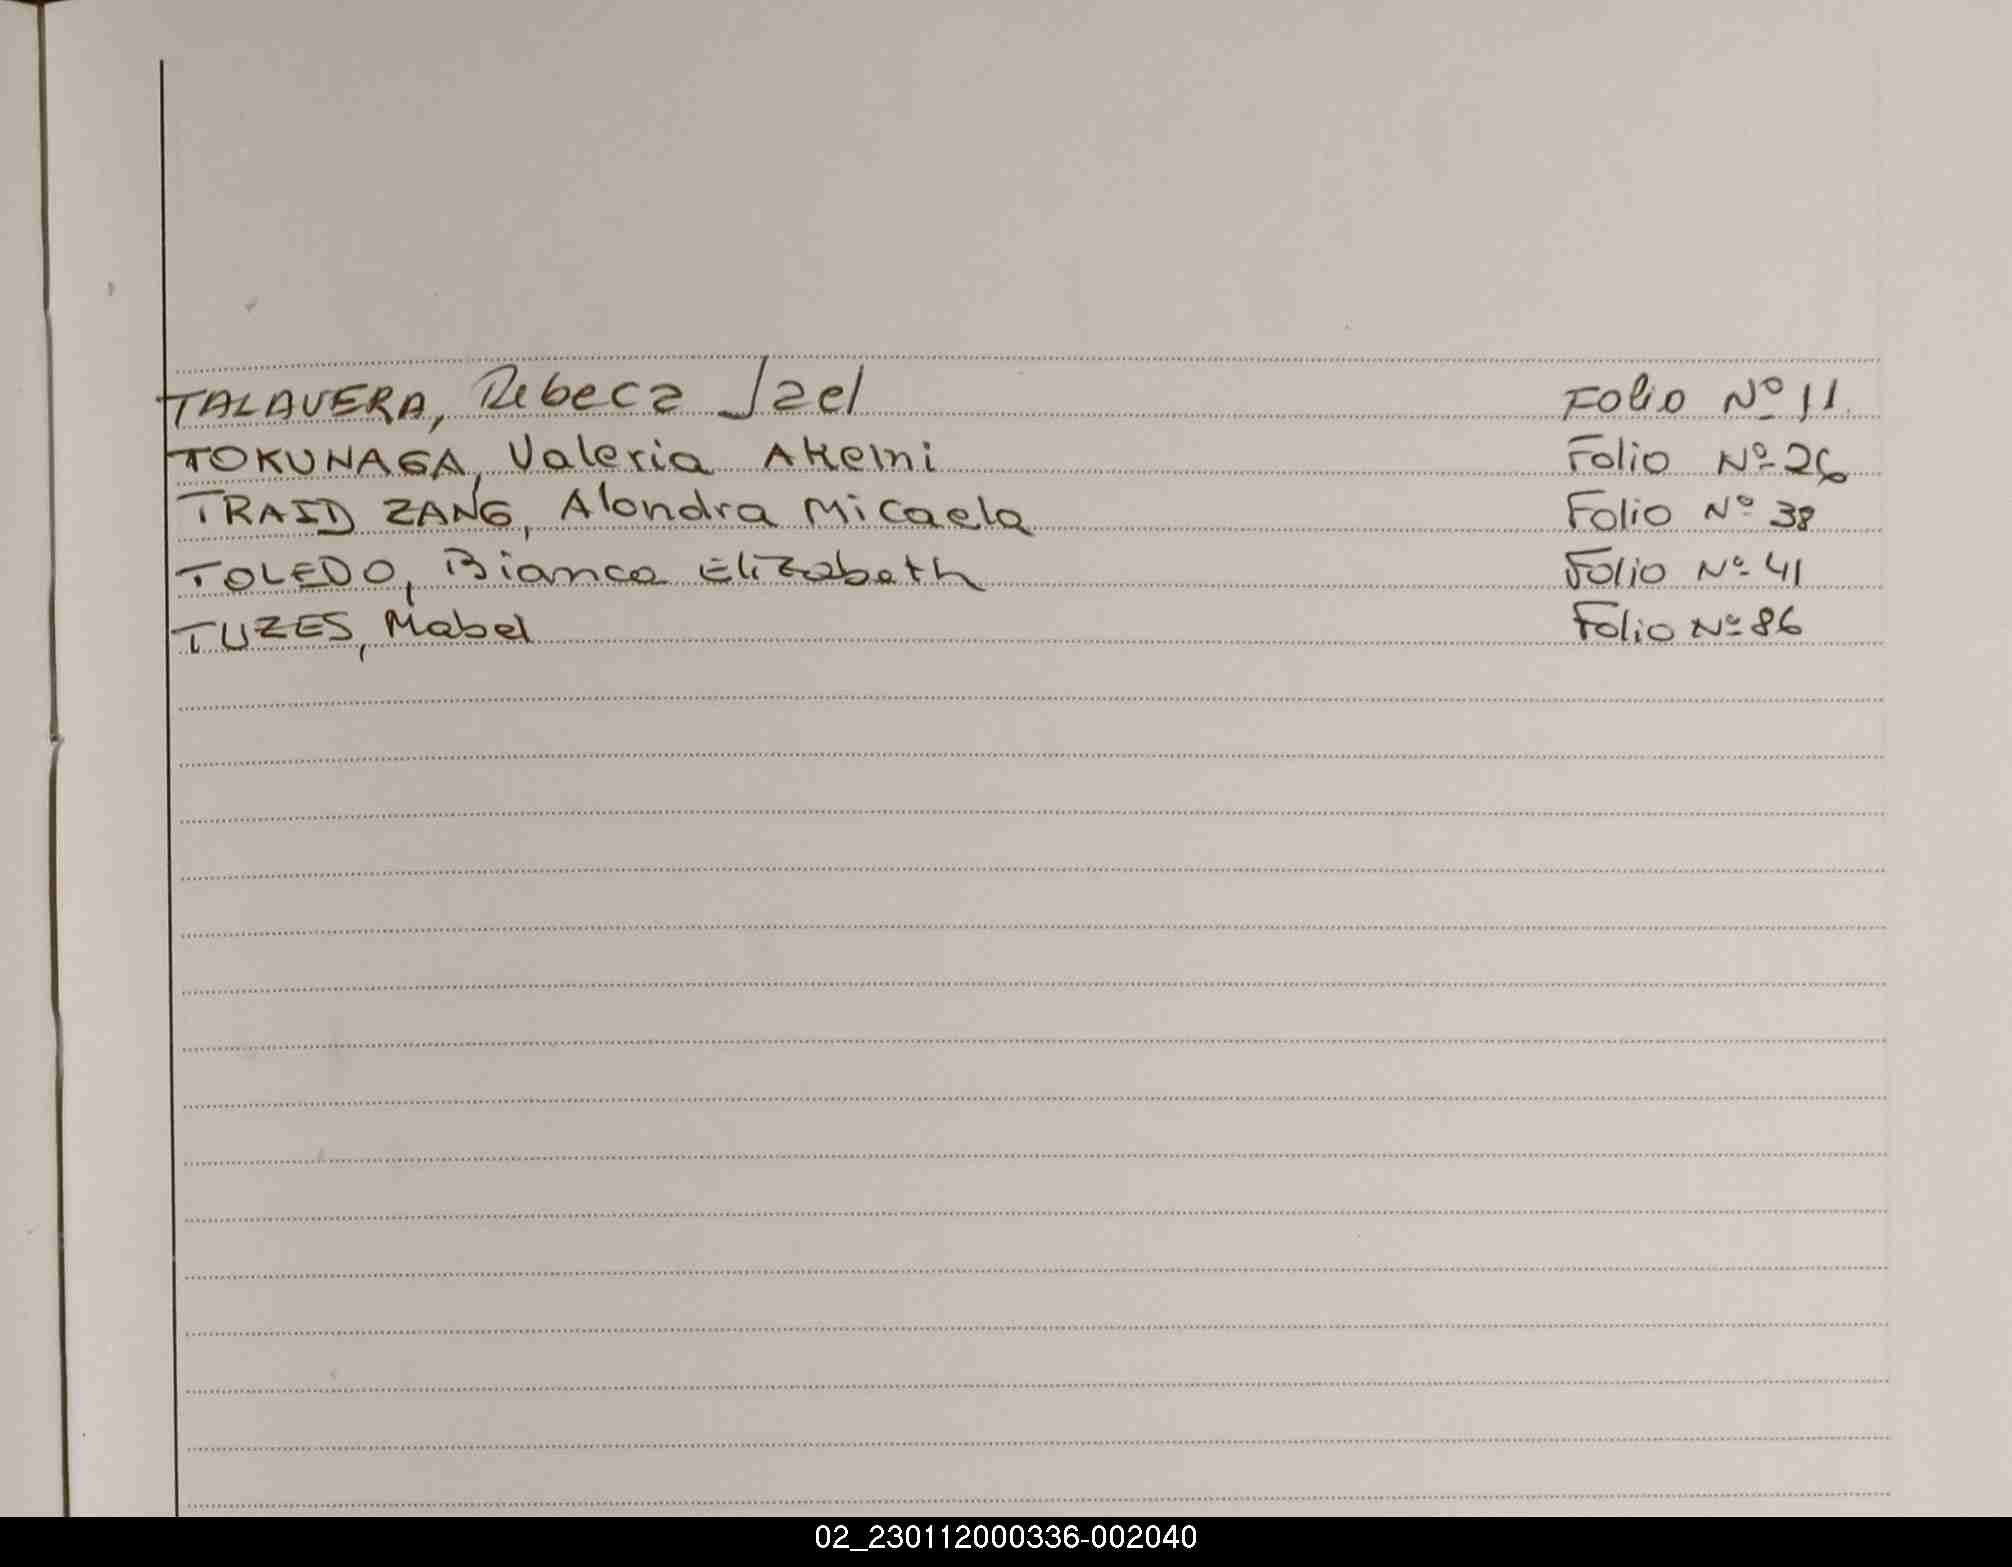 TALAVERA, Rebeca Jael Folio Nº 11
TOKUNAGA, Valeria Akemi Folio Nº 26
TRAID ZANG, Alondra Micaela Folio Nº 38
TOLEDO, Bianca Elizabeth Folio Nº 41
TUZES, Mabel Folio Nº 86
02_230112000336-002040